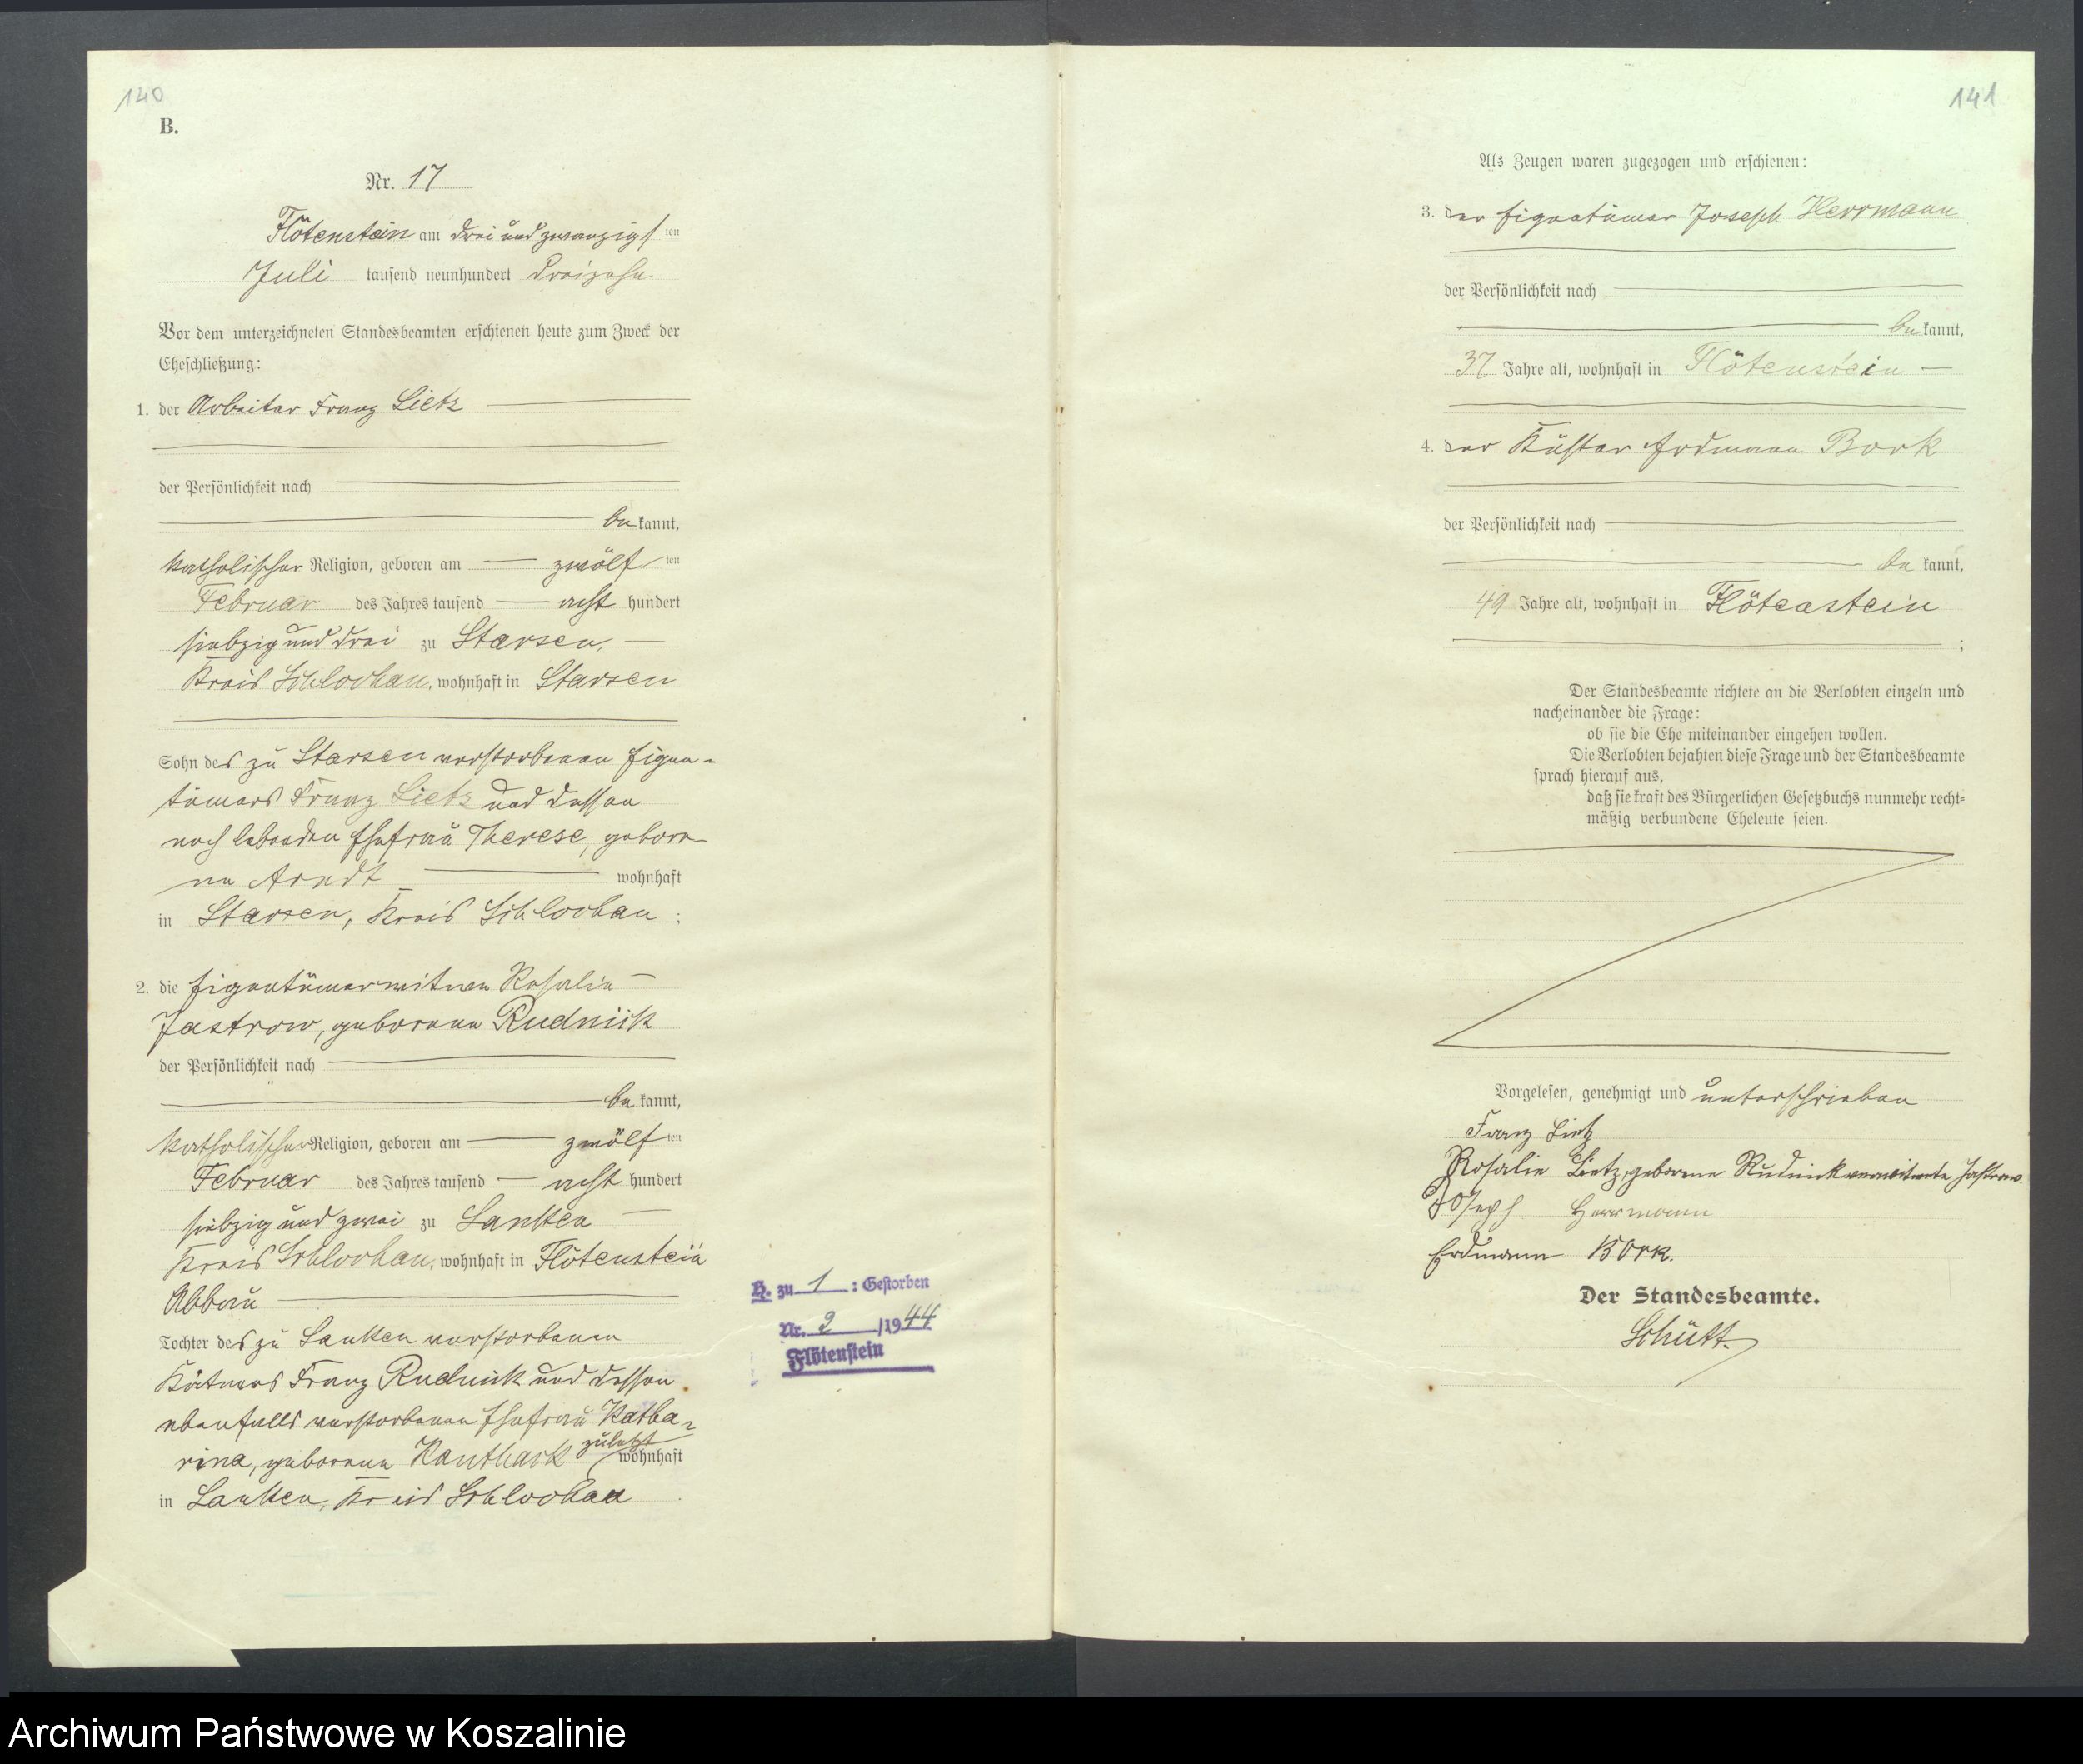 140
B.
Nr. 17
Flötenstein am drei und zwanzigsten
Juli tausend neunhundert dreizehn
Vor dem unterzeichneten Standesbeamten erschienen heute zum Zweck der
Eheschließung:
1. der Arbeiter Franz Lietz
der Persönlichkeit nach
bekannt,
katholischer Religion, geboren am zwölften
Februar des Jahres tausend acht hundert
siebzig und drei zu Starsen,
Kreis Schlochau, wohnhaft in Starsen
Sohn des zu Starsen verstorbenen Eigen-
tümers Franz Lietz und dessen
noch lebenden Ehefrau Therese, gebore-
ne Arndt wohnhaft
in Starsen, Kreis Schlochau;
2. die Eigentümerwitwe Rosalie
Jastrow, geborene Rudnick
der Persönlichkeit nach
bekannt,
katholischer Religion, geboren am zwölften
Februar des Jahres tausend acht hundert
siebzig und zwei zu Lanken
Kreis Schlochau, wohnhaft in Flötenstein
Abbau
Tochter des zu Lanken verstorbenen
Kätners Franz Rudnick und dessen
ebenfalls verstorbenen Ehefrau Katha-
rina, geborene zuletzt wohnhaft
in Lanken, Kreis Schlochau
H. zu 1: Gestorben
Nr. 2/1944
Flötenstein
141
Als Zeugen waren zugezogen und erschienen:
3. der Eigentümer Joseph Herrmann
der Persönlichkeit nach
bekannt,
37 Jahre alt, wohnhaft in Flötenstein
4. der Küster Erdmann Bork
der Persönlichkeit nach
bekannt,
49 Jahre alt, wohnhaft in Flötenstein
;
Der Standesbeamte richtete an die Verlobten einzeln und
nacheinander die Frage:
ob sie die Ehe miteinander eingehen wollen.
Die Verlobten bejahten diese Frage und der Standesbeamte
sprach hierauf aus,
daß sie kraft des Bürgerlichen Gesetzbuchs nunmehr recht-
mäßig verbundene Eheleute seien.
Vorgelesen, genehmigt und unterschrieben
Franz Lietz
Rosalie Lietz, geborene Rudnick verwitwete Jastrow.
Joseph Herrmann
Erdmann Bork.
Der Standesbeamte.
Schütt.
Archiwum Państwowe w Koszalinie